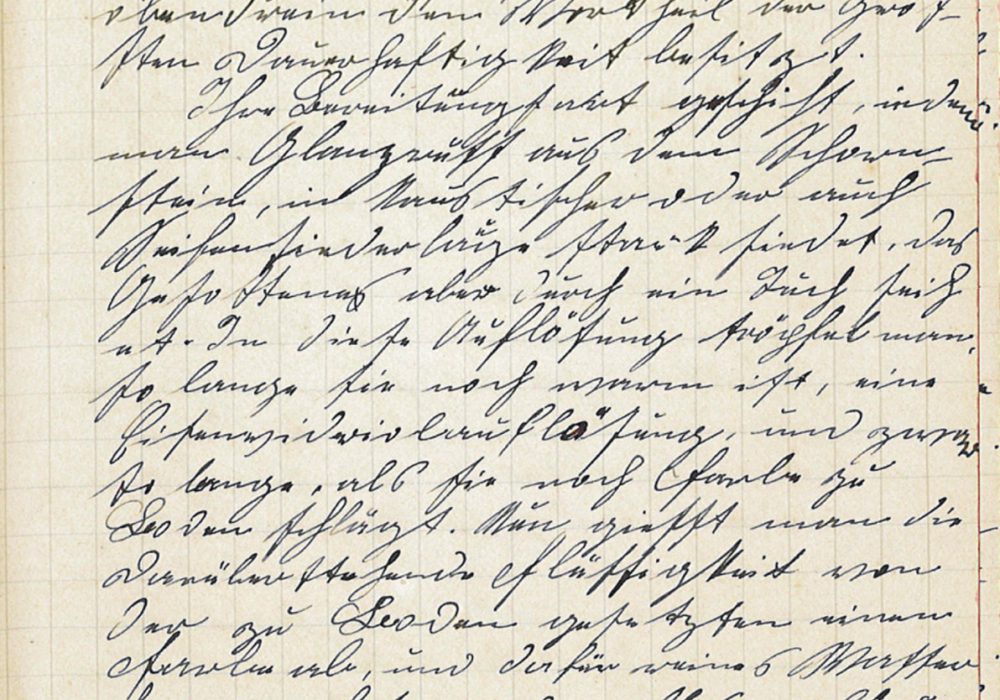 obendrein den Vortheil der größ-
ten Dauerhaftigkeit besitzt.
Ihre Bereitungsart geschiht, indem
man Glanzruß aus dem Schorn-
stein, in kaustischer oder auch
Seifensiederlauge stark siedet, das
Gesottenes aber durch ein Tuch seih
et. In diese Auflösung tröpfel man,
so lange sie noch warm ist, eine
Eisenvidriolauflösung, und zwar
so lange, als sie noch Farbe zu
Boden schlägt. Nun giesst man die
darüberstehende Flüssigkeit von
der zu Boden gesetzten einen
Farbe ab, und dafür reines Wasser